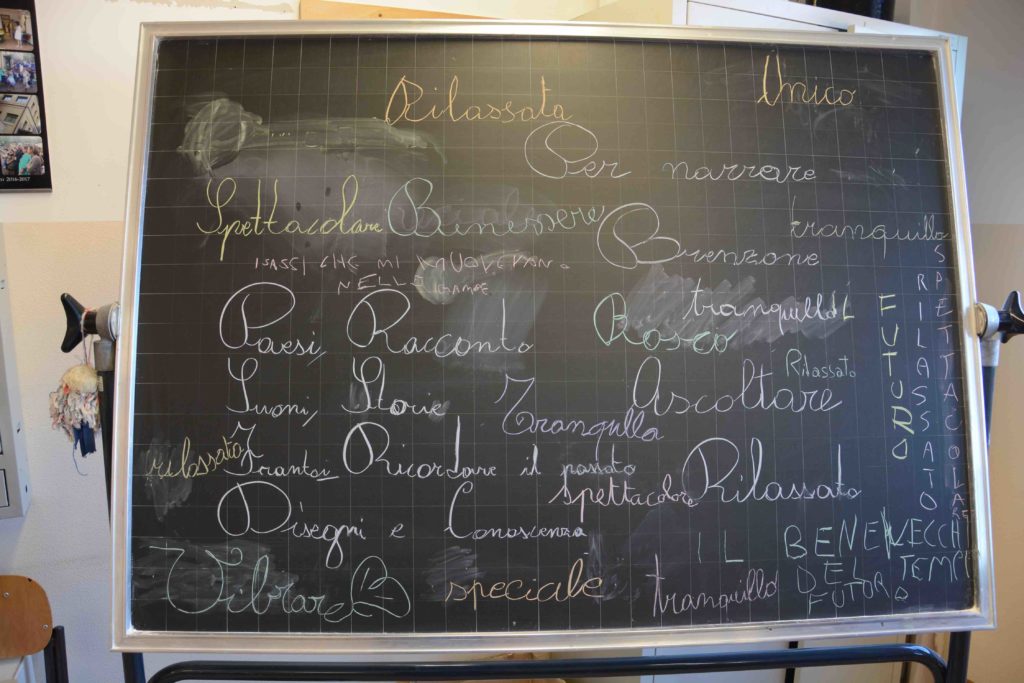 Rilassata
Unico
Per narrare
Spettacolare
Benessere
Brenzone
tranquillo
I SASSI CHE MI MUOVEVANO
NELLE GAMBE
Paesi, Racconto
Bosco
tranquillo
IL
FUTURO
RILASSATO
SPETTACOLARE
Suoni, Storie
Ascoltare
Rilassato
Tranquilla
rilassata
Frantoi Ricordare il passato
spettacolare
Rilassato
Disegni e Conoscenza
IL BENE
DEL
FUTURO
VECCHI
TEMPI
Vibrare
speciale
tranquillo
2016-2017